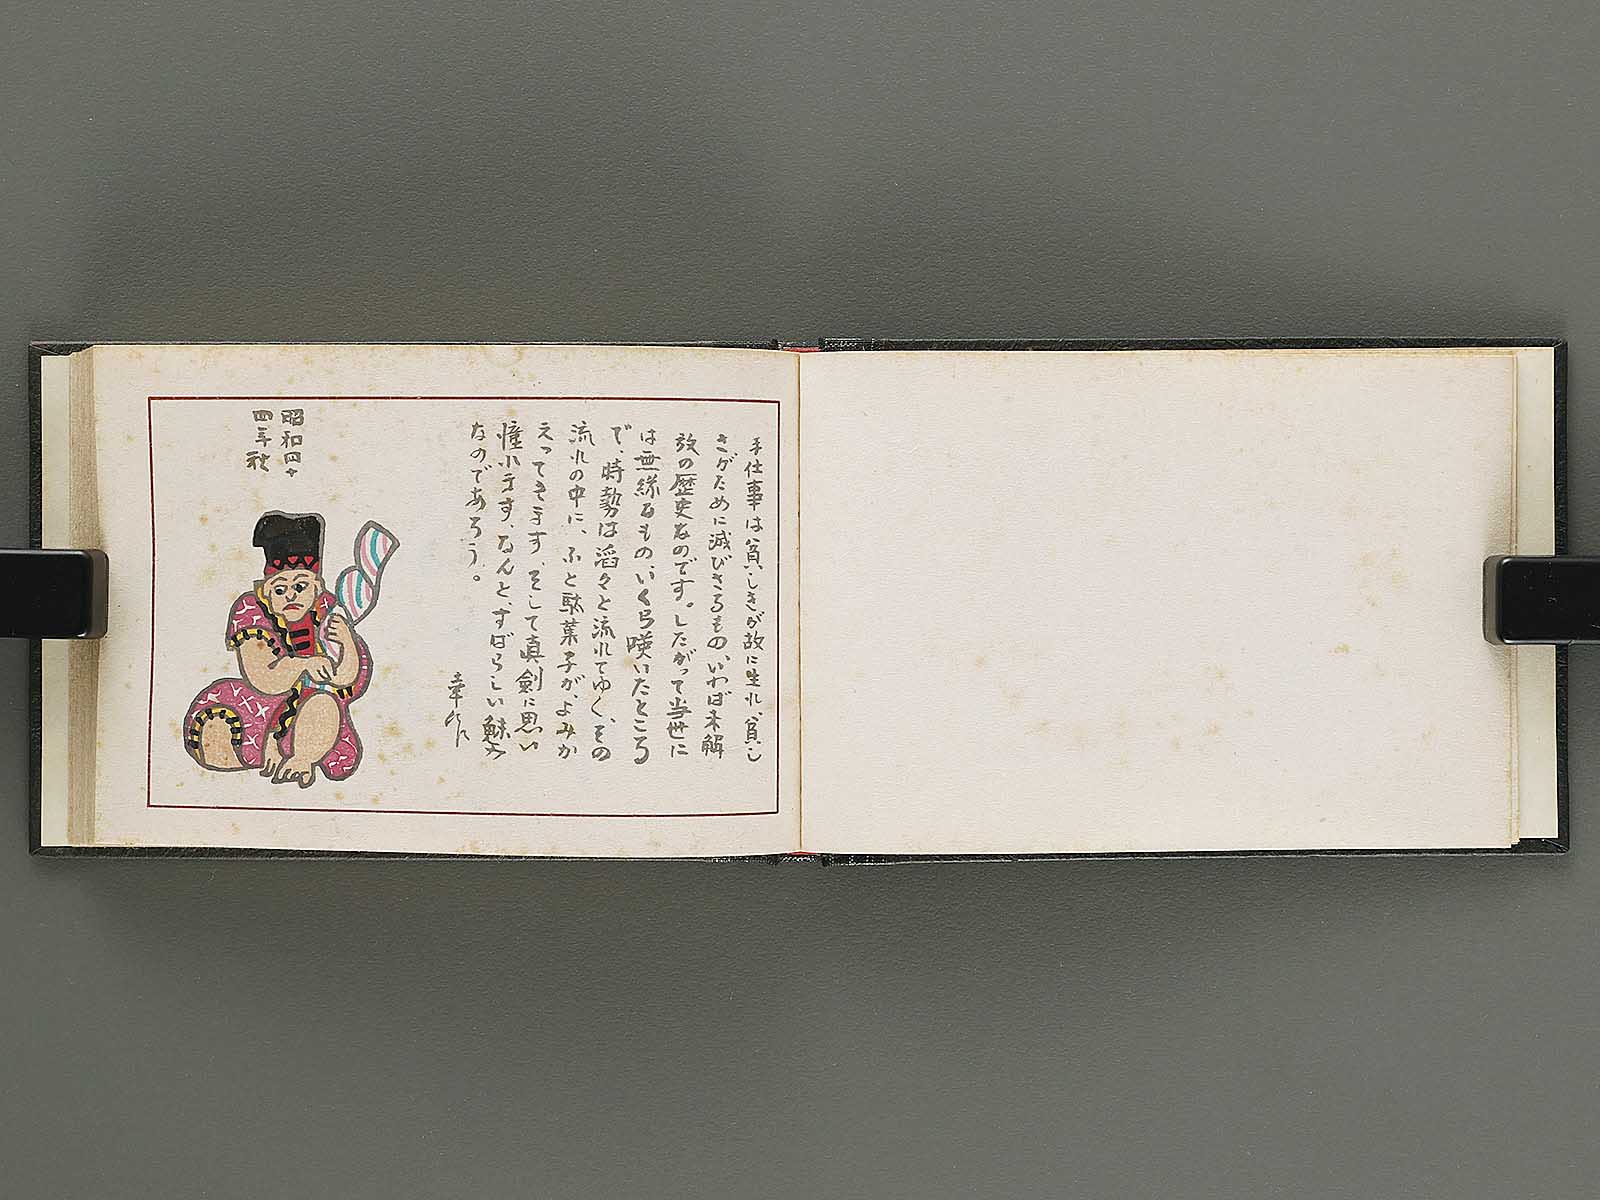 手仕事は貧しきが故に生れ、貧し
さがために滅びさるもの、いわば未解
放の歴史なのです。したがって当世に
は無縁るもの、いくら咲いたところ
で、時勢は滔々と流れてゆく、その
流れの中に、ふと駄菓子が、よみが
えってきます、そして真剣に思い
憧れます、なんと、すばらしい魅力
なのであろう。
昭和四十
四年秋